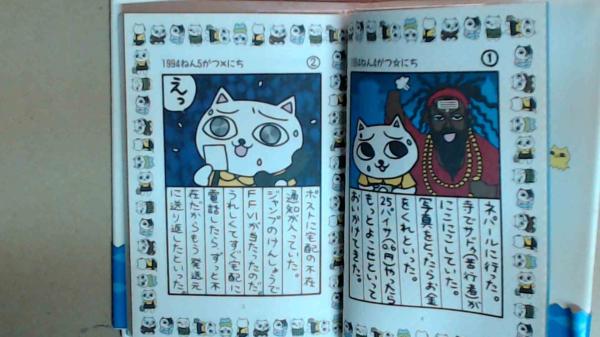 ①
1994ねん4がつ☆にち
ネパールに行った。
寺でサドゥ(苦行者)が
にこにこしていた。
写真をとったらお金
をくれといった。
25パイサ(60円)やったら
もっとよこせといって
おいかけてきた。
②
1994ねん5がつ×にち
えっ
ポストに宅配の不在
通知が入っていた。
ジャンプのけんしょうで
FFⅥが当たったのだ。
うれしくてすぐ宅配に
電話したらずっと不
在だからもう発送元
に送り返したといった。